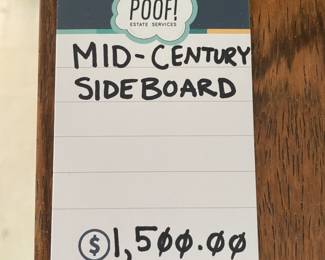 POOF!
ESTATE SERVICES
MID-CENTURY
SIDEBOARD
$1,500.00